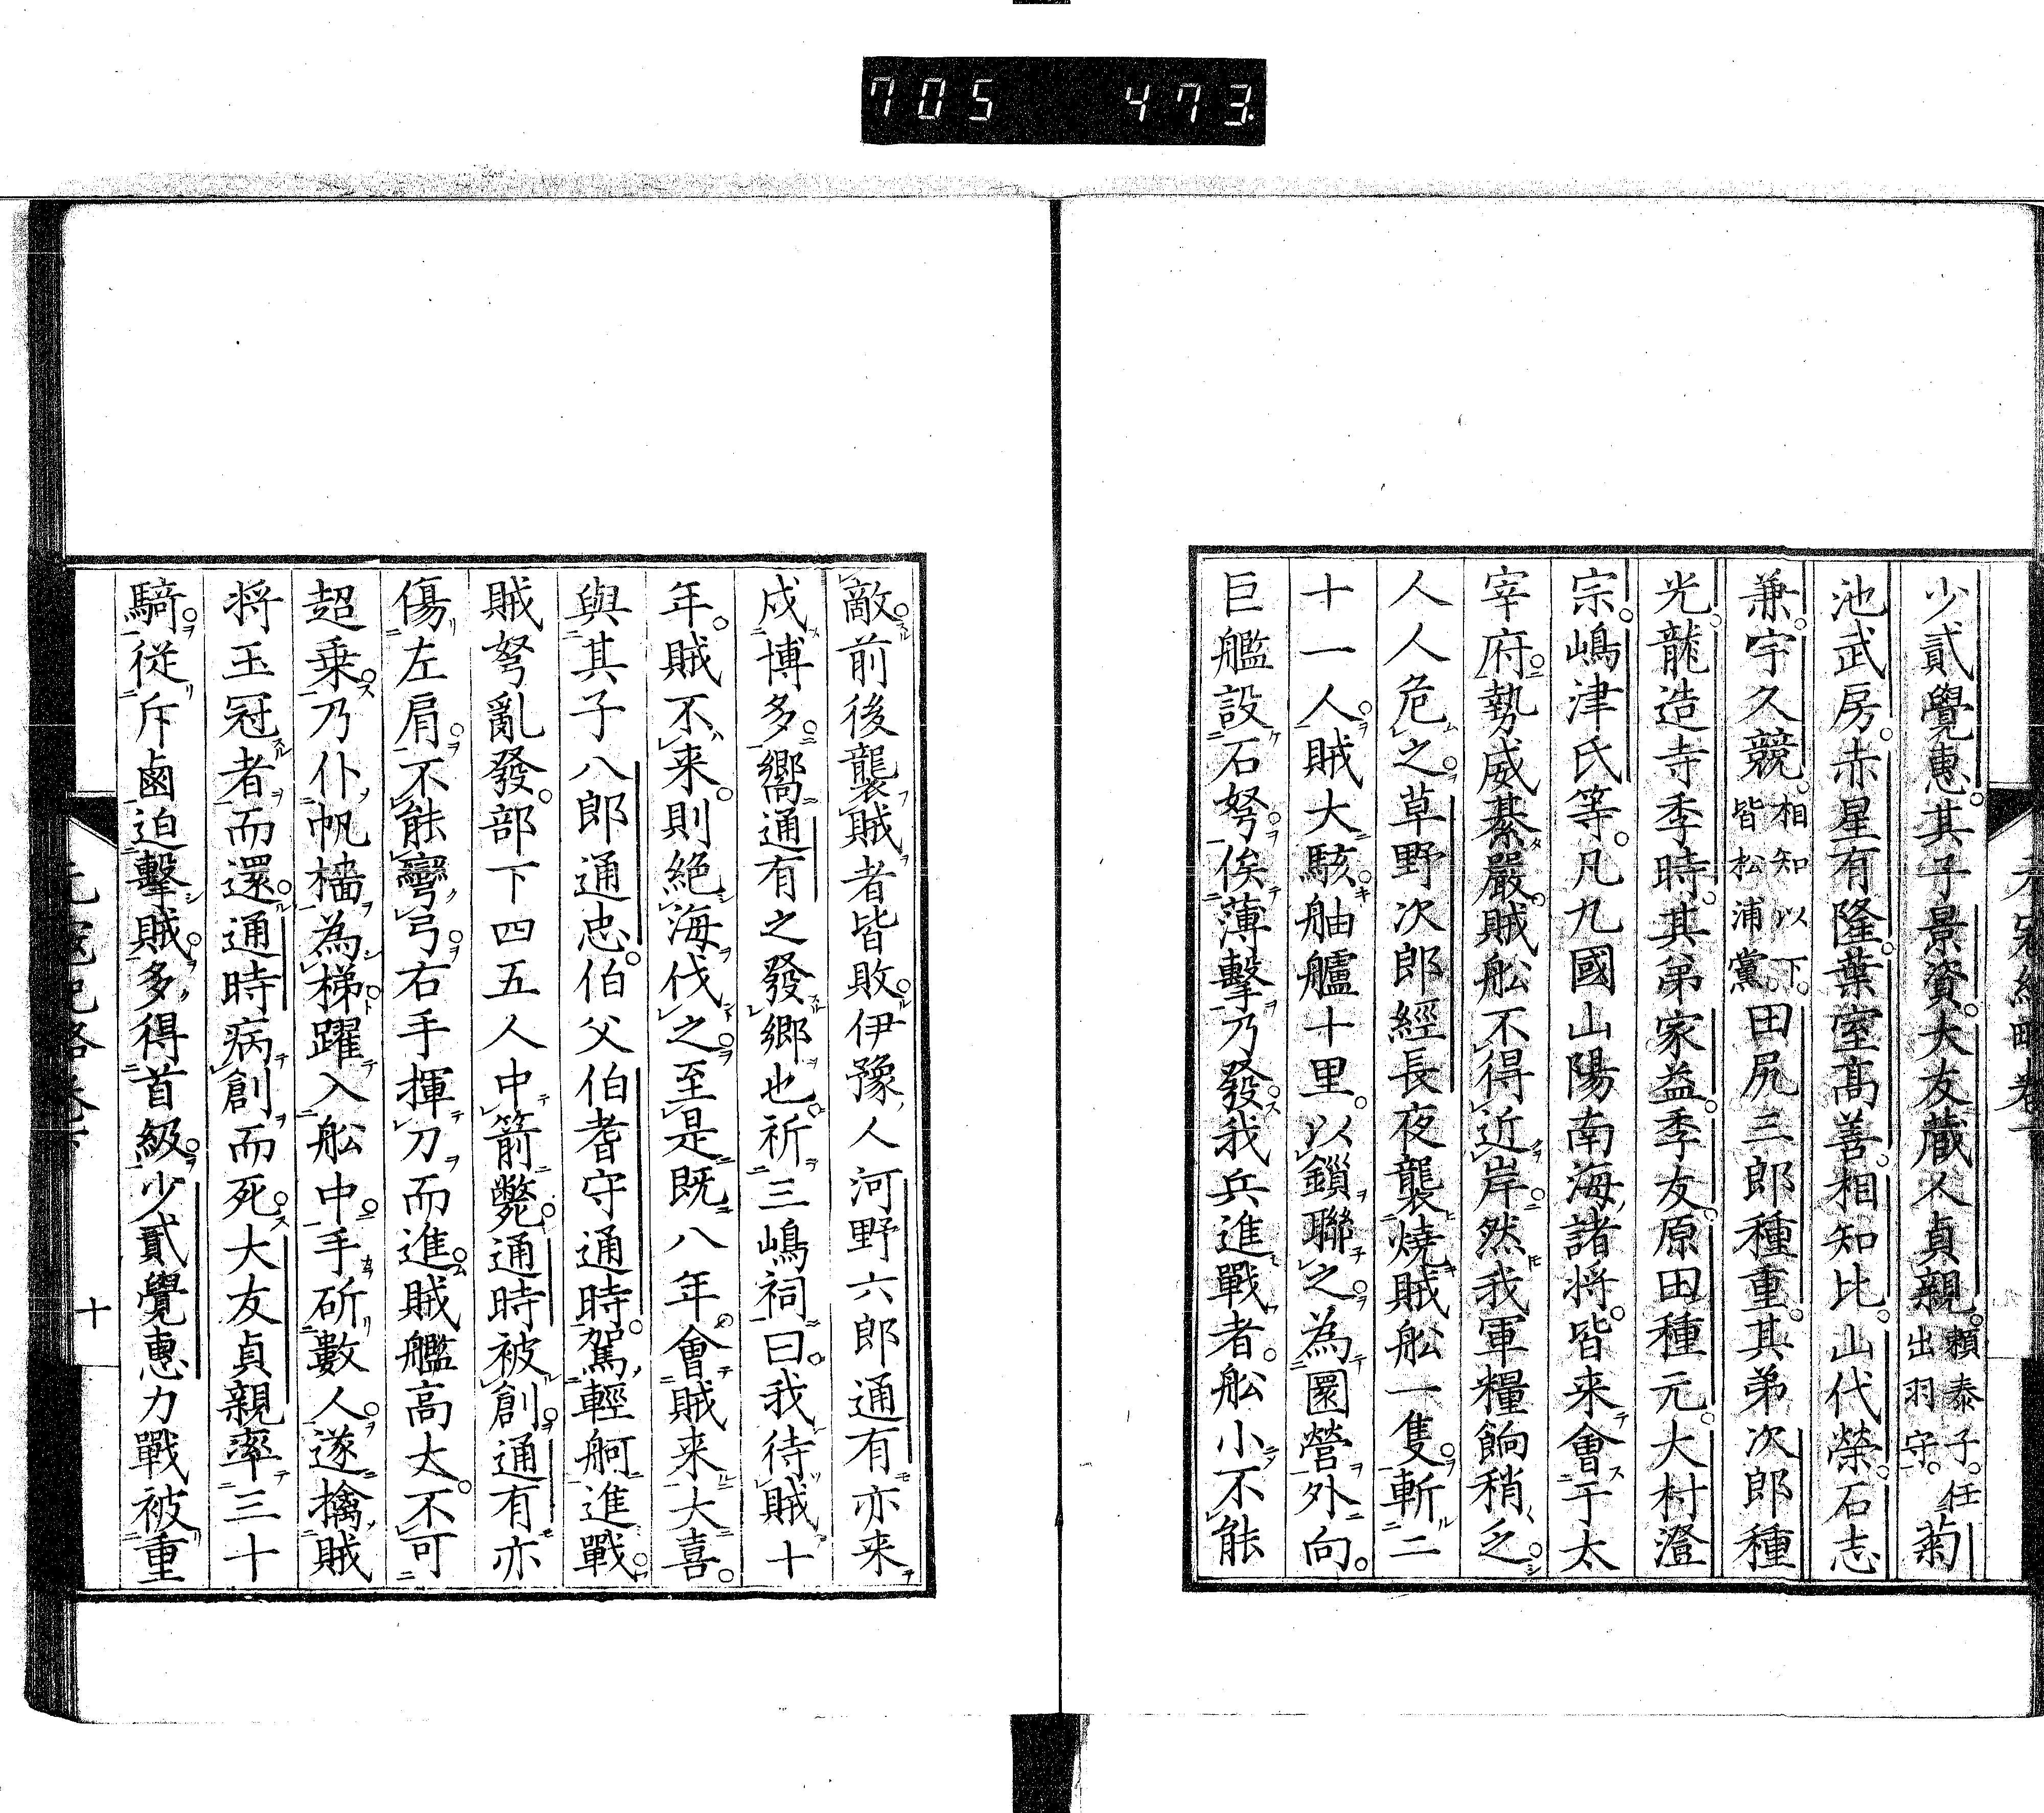 705 473
少貳覺惠其子景資大友蔵人貞親頼泰子任出羽守菊
池武房赤星有隆葉室高善相知比山代榮石志
兼宇久競相知以下皆松浦黨田尻三郎種重其弟次郎種
光龍造寺季時其弟家益季友原田種元大村澄
宗嶋津氏等凡九國山陽南海諸将皆来會于太
宰府勢威綦嚴賊舩不得近岸然我軍糧餉稍乏
人人危之草野次郎經長夜襲燒賊舩一隻斬二
十一人賊大駭舳艫十里以鎖聯之為圜營外向
巨艦設石弩俟薄擊乃發我兵進戰者舩小不能
敵前後襲賊者皆敗伊豫人河野六郎通有亦来
戍博多嚮通有之發郷也祈三嶋祠曰我待賊十
年賊不来則絶海伐之至是既八年會賊来大喜
與其子八郎通忠伯父伯耆守通時駕輕舸進戰
賊弩亂發部下四五人中箭斃通時被創通有亦
傷左肩不能彎弓右手揮刀而進賊艦高大不可
超乗乃仆帆檣為梯躍入舩中手斫數人遂擒賊
将玉冠者而還通時病創而死大友貞親率三十
騎従斥鹵迫擊賊多得首級少貳覺惠力戰被重
十